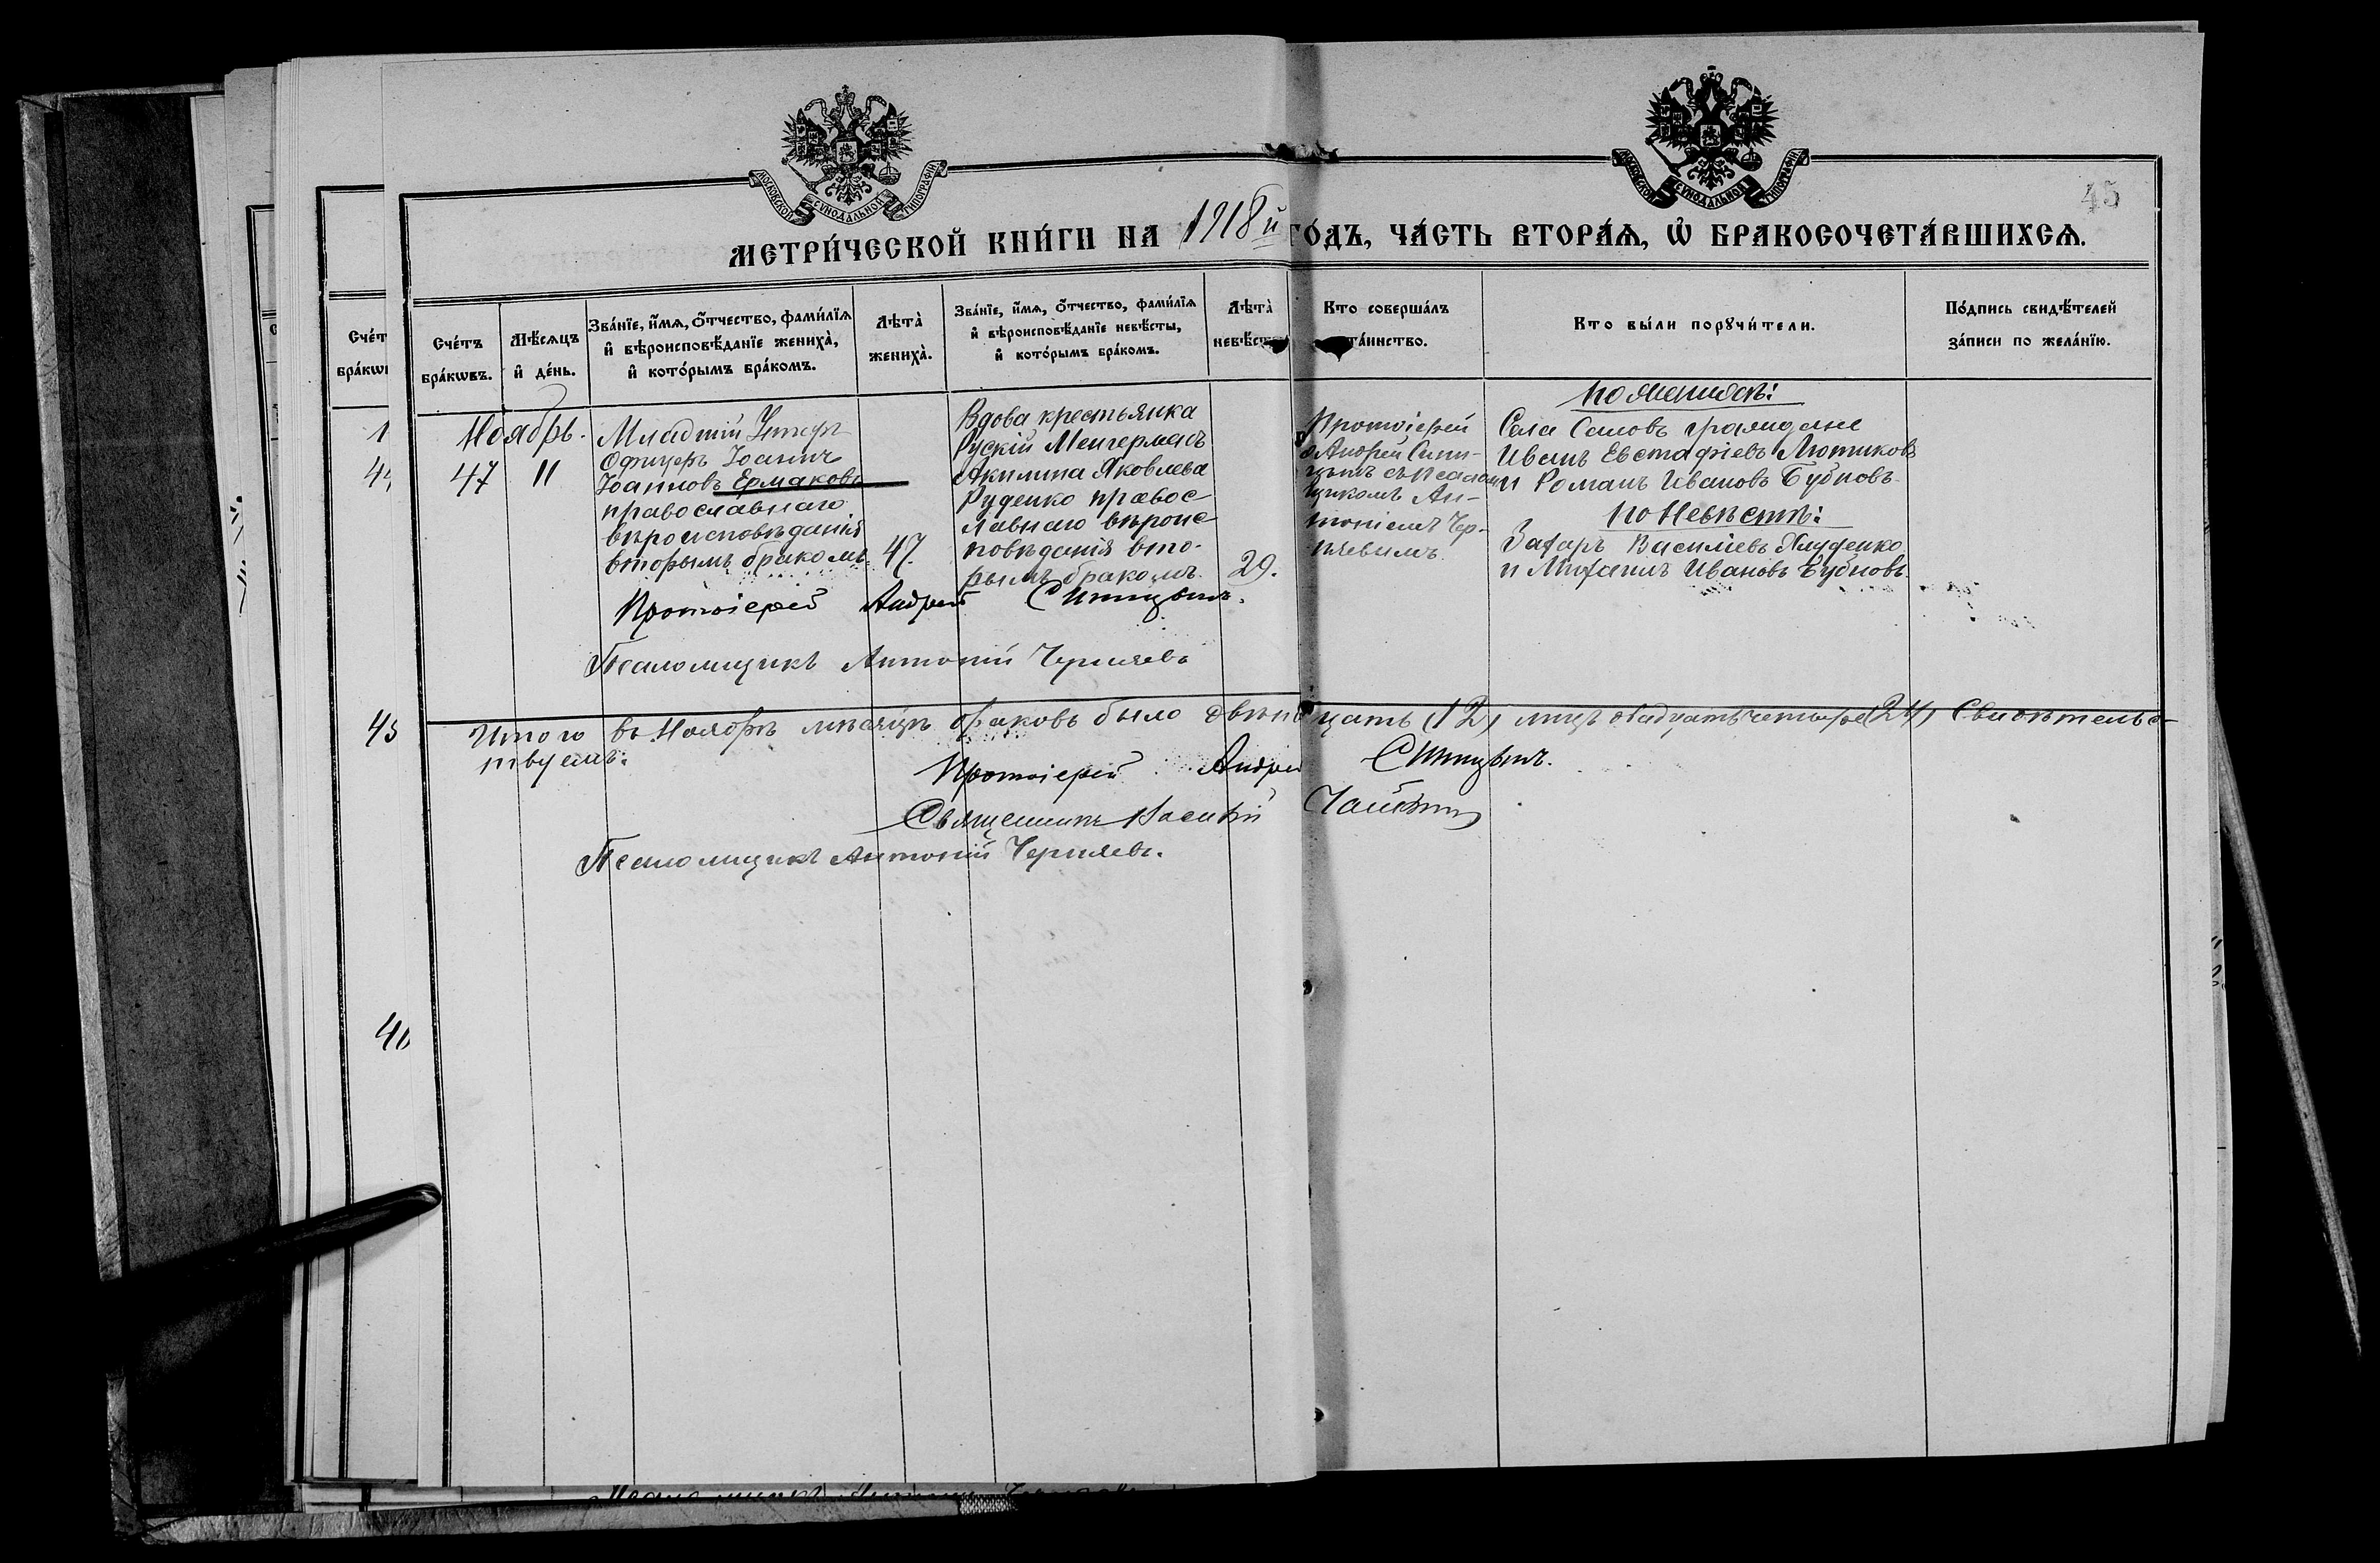 МОСКОВСКОЙ СУНОДАЛЬНОЙ ТИПОГРАФІИ
МОСКОВСКОЙ СУНОДАЛЬНОЙ ТИПОГРАФІИ
45
МЕТРИ́ЧЕСКОЙ КНИ́ГИ НА 1918й ГО́ДЪ, ЧА́СТЬ ВТОРА́Ѧ, Ѽ БРАКОСОЧЕТА́ВШИХСѦ.
Сче́тъ
бра́кѡвъ.
Мѣ́сѧцъ
и҆ де́нь.
Зва́нїе, и҆́мѧ, ѻ҆́тчество, фами́лїѧ
и҆ вѣроисповѣ́данїе женихà,
и҆ кото́рымъ бра́комъ.
Лѣтà
женихà.
Зва́нїе, и҆́мѧ, ѻ҆́тчество, фами́лїѧ
и҆ вѣроисповѣ́данїе невѣ́сты,
и҆ кото́рымъ бра́комъ.
Лѣтà
невѣ́ст
Кто соверша́лъ
та́инство.
Кто бы́ли порꙋчи́тели.
По́дпись свидѣ́телей
за́писи по жела́нїю.
Ноябрь.
47
11
Младшій Унтеръ
Офицеръ Іоаннъ
Іоанновъ Ермаковъ
православнаго
вѣроисповѣданія
вторымъ бракомъ
47.
Вдова крестьянка
Акилина Яковлева
Руденко правос-
лавнаго вѣроис-
повѣданія вто-
рымъ бракомъ.
29.
Протоіерей
Андрей Синицынъ съ Псаломщикомъ Ан-
тоніемъ Чер-
няевымъ.
По Женихѣ:
Села граждане
Иванъ Евстафіевъ Лютиковъ
и Романъ Ивановъ Бубновъ
По Невѣстѣ:
Захаръ Василіевъ
и Михаилъ Ивановъ Бубновъ.
Протоіерей Андрей Синицынъ.
Псаломщикъ Антоній Черняевъ
Итого въ Ноябрѣ мѣсяцѣ браковъ было двѣнадцать (12) лицъ двадцать четыре (24) Свидѣтельс-
твуемъ:
Протоіерей Андрей Синицынъ.
Священникъ Василій
Псаломщикъ Антоній Черняевъ.